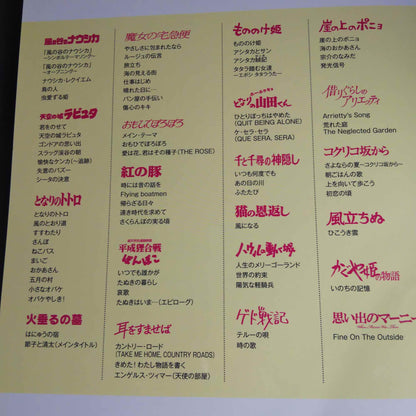 風の谷のナウシカ
「風の谷のナウシカ」
～シンボルテーマソング～
「風の谷のナウシカ」
～オープニング～
ナウシカ・レクイエム
鳥の人
虫愛する姫
天空の城ラピュタ
君をのせて
天空の城ラピュタ
ゴンドアの思い出
スラッグ渓谷の朝
愉快なケンカ(～追跡)
失意のパズー
シータの決意
となりのトトロ
となりのトトロ
風のとおり道
すすわたり
さんぽ
ねこバス
まいご
おかあさん
五月の村
小さなオバケ
オバケやしき!
火垂るの墓
はにゅうの宿
節子と清太(メインタイトル)
魔女の宅急便
やさしさに包まれたなら
ルージュの伝言
旅立ち
海の見える街
仕事はじめ
晴れた日に…
パン屋の手伝い
傷心のキキ
おもひでぽろぽろ
メイン・テーマ
おもひでぽろぽろ
愛は花、君はその種子(THE ROSE)
紅の豚
時には昔の話を
Flying boatmen
帰らざる日々
遠き時代を求めて
さくらんぼの実る頃
平成狸合戦
ぽんぽこ
いつでも誰かが
たぬきの暮らし
哀歌
たぬきはいま…(エピローグ)
耳をすませば
カントリー・ロード
(TAKE ME HOME, COUNTRY ROADS)
きめた!わたし物語を書く
エンゲルス・ツィマー(天使の部屋)
もののけ姫
もののけ姫
アシタカとサン
アシタカ𦻙記
タタラ踏む女達
ーエボシ タタラうたー
ホーホケキョ
となりの山田くん
ひとりぼっちはやめた
(QUIT BEING ALONE)
ケ・セラ・セラ
(QUE SERA SERA)
千と千尋の神隠し
いつも何度でも
あの日の川
ふたたび
猫の恩返し
風になる
ハウルの動く城
人生のメリーゴーランド
世界の約束
陽気な軽騎兵
ゲド戦記
テルーの唄
時の歌
崖の上のポニョ
崖の上のポニョ
海のおかあさん
宗介のなみだ
発光信号
借りぐらしの
アリエッティ
Arrietty's Song
荒れた庭
The Neglected Garden
コクリコ坂から
さよならの夏～コクリコ坂から～
朝ごはんの歌
上を向いて歩こう
初恋の頃
風立ちぬ
ひこうき雲
かぐや姫の物語
いのちの記憶
思い出のマーニー
Fine On The Outside